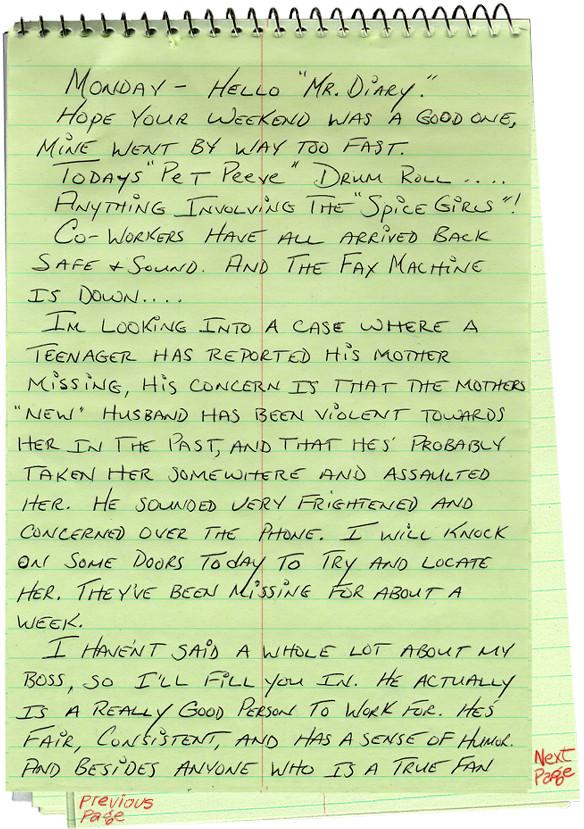 MONDAY - HELLO "MR. DIARY."
HOPE YOUR WEEKEND WAS A GOOD ONE,
MINE WENT BY WAY TOO FAST.
TODAYS "PET PEEVE" DRUM ROLL ....
ANYTHING INVOLVING THE "SPICE GIRLS"!
CO-WORKERS HAVE ALL ARRIVED BACK
SAFE & SOUND. AND THE FAX MACHINE
IS DOWN....
IM LOOKING INTO A CASE WHERE A
TEENAGER HAS REPORTED HIS MOTHER
MISSING, HIS CONCERN IS THAT THE MOTHERS
"NEW" HUSBAND HAS BEEN VIOLENT TOWARDS
HER IN THE PAST, AND THAT HES' PROBABLY
TAKEN HER SOMEWHERE AND ASSAULTED
HER. HE SOUNDED VERY FRIGHTENED AND
CONCERNED OVER THE PHONE. I WILL KNOCK
ON SOME DOORS TODAY TO TRY AND LOCATE
HER. THEY'VE BEEN MISSING FOR ABOUT A
WEEK.
I HAVEN'T SAID A WHOLE LOT ABOUT MY
BOSS, SO I'LL FILL YOU IN. HE ACTUALLY
IS A REALLY GOOD PERSON TO WORK FOR. HE'S
FAIR, CONSISTENT, AND HAS A SENSE OF HUMOR.
AND BESIDES ANYONE WHO IS A TRUE FAN
Next
Page
Previous
Page